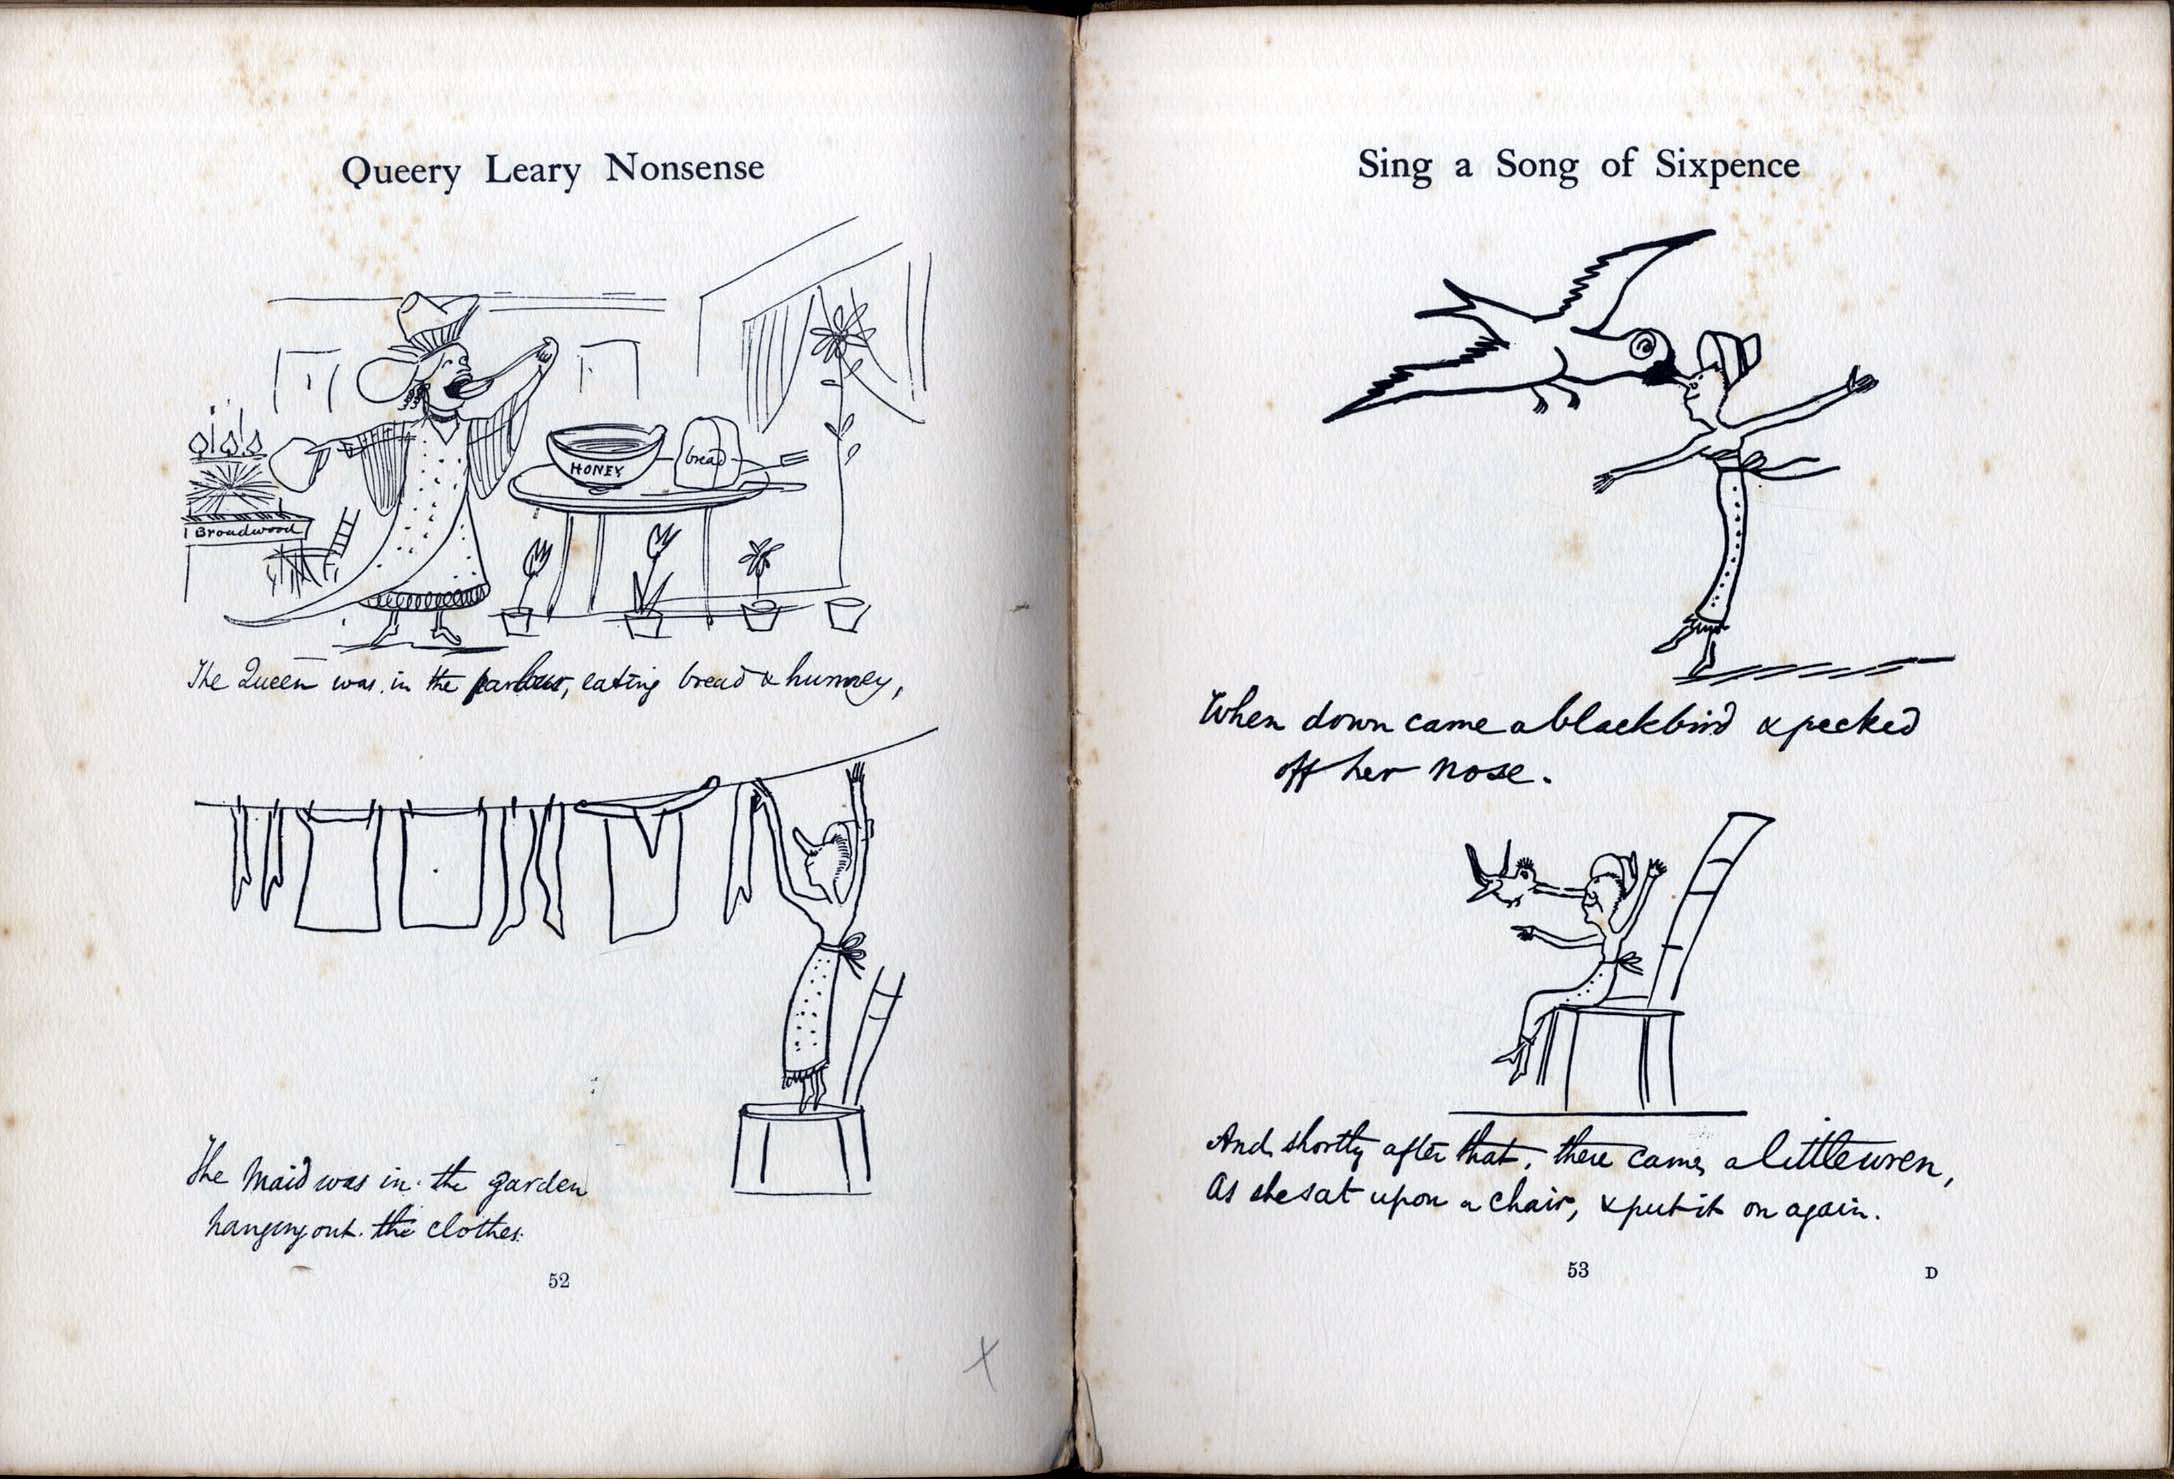 Queery Leary Nonsense
HONEY
bread
Broadwood
The Queen was in the parlour, eating bread & hunney,
The Maid was in the garden
hanging out the clothes.
52
Sing a Song of Sixpence
When down came a blackbird & pecked
off her nose.
And shortly after that, there came a little wren,
As she sat upon a chair, & put it on again.
53
D